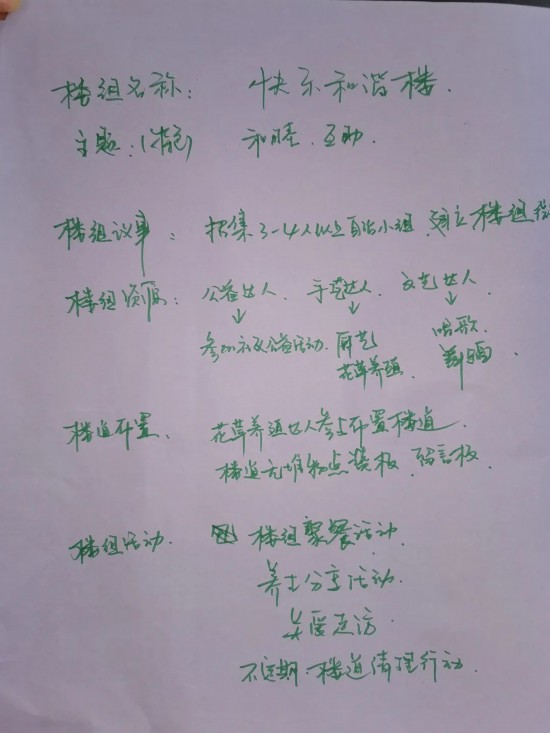 楼组名称： 快乐和谐楼.
主题：(特色) 和睦.互助.
楼组议事： 招集3-4人以上自治小组,建立楼组
楼组资源： 公益达人. 手艺达人. 文艺达人
↓ ↓ ↓
参加社区公益活动. 厨艺 唱歌.
花草养殖.
楼道布置. 花草养殖达人参与布置楼道.
楼道无堆物点 板.留言板.
楼组活动. 楼组聚餐活动.
养生分享活动.
关爱走访.
不定期.楼道清理行动.